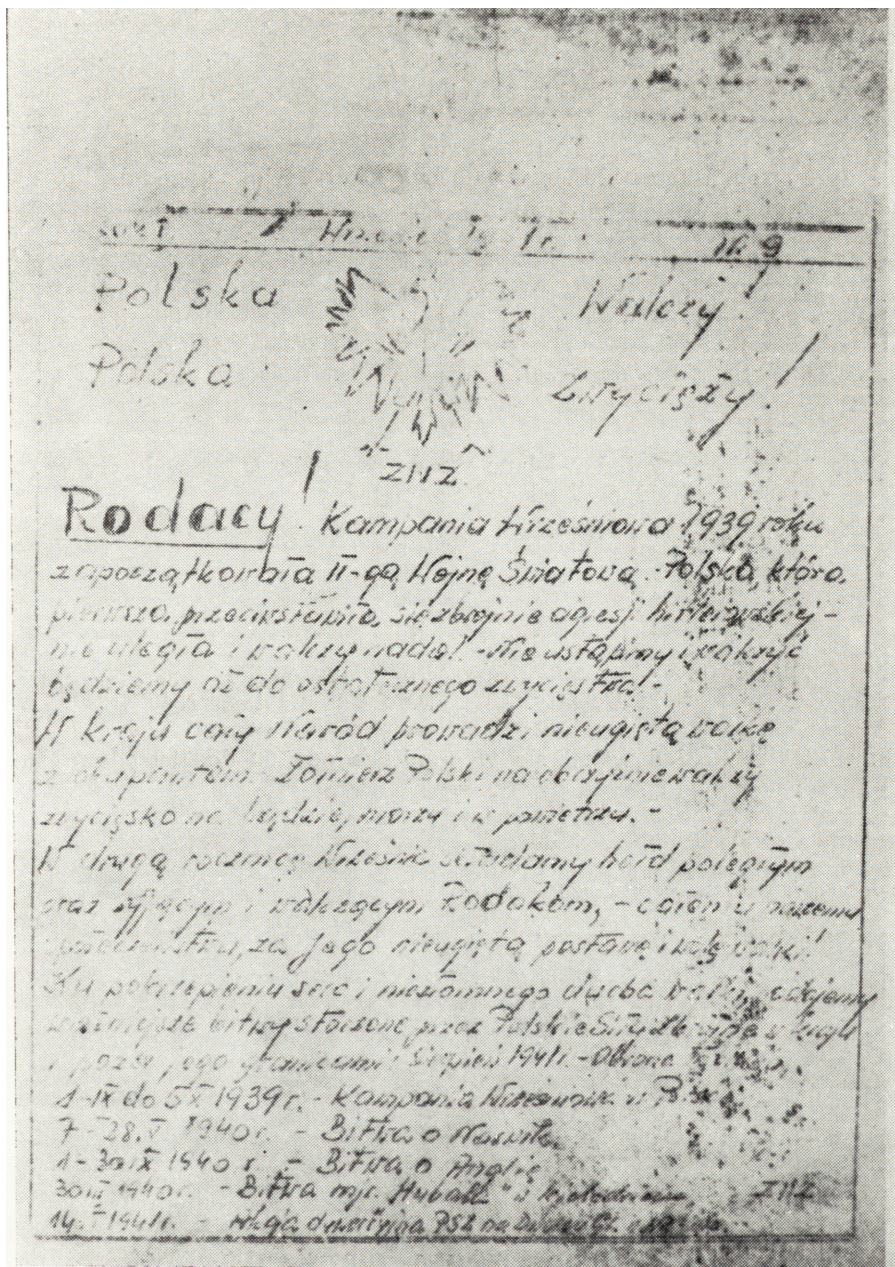 Nr 9
Polska Walczy!
Polska Zwycięży!
"ZWZ"
Rodacy! Kampania Wrześniowa 1939 roku
zapoczątkowała II-gą Wojnę Światową. Polska, która
pierwsza, przeciwstawiła, się zbrojnie agresji hitlerowskiej -
nie uległa i walczy nadal. - Nie ustąpimy i walczyć
będziemy aż do ostatecznego zwycięstwa. -
W kraju cały Naród prowadzi nieugiętą walkę
z okupantem. Żołnierz Polski na obczyźnie walczy
zwycięsko na lądzie, morzu i w powietrzu. -
W drugą rocznicę Września składamy hołd poległym
oraz żyjącym i walczącym Rodakom, - całemu naszemu
społeczeństwu, za jego nieugiętą postawę i wolę walki!
Ku pokrzepieniu serc i niezłomnego ducha
ważniejsze bitwy stoczone przez Polskie Siły Zbrojne w kraju
i poza jego granicami: Sierpień 1941r. - Obrona
1-IX do 5 X 1939 r. - Kampania Wrześniowa w
7-28.V 1940 r. - Bitwa o Narwik.
1-30 IX 1940 r. - Bitwa o Anglię
1940 r. - Bitwa mjr. "Hubali" w ZWZ
1941r. - Akcja dywersyjna PSZ na